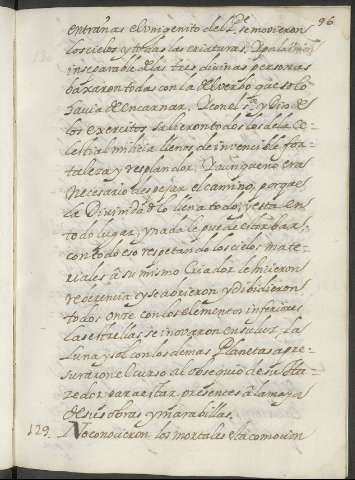 96
entrañas el vnigenito del Pe. se movieron
los cielos y todas las criaturas. Y por la vnion
inseparable de las tres divinas personas
baxaron todas con la del verbo que solo
havia de encarnar. Y con el Sr. y Dios de
los exercitos salieron todos los de la ce-
lestial milicia llenos de invencible for-
taleza y resplandor. Y aunque no era
necesario despejar el camino, porque
la Divinidad lo llena todo, y esta en
todo lugar, y nada le puede estorbar;
con todo eso respetando los cielos mate-
riales a su mismo Criador le hicieron
reverencia, y se abrieron y dibidieron
todos onze con los elementos inferiores
las estrellas se inovaron en su luz, la
luna y sol con los demas Planetas apre-
suraron el curso al obsequio de su Ha-
zedor, para estar presentes a la mayor
de sus obras y marabillas.
129. No conocieron los mortales esta comocion